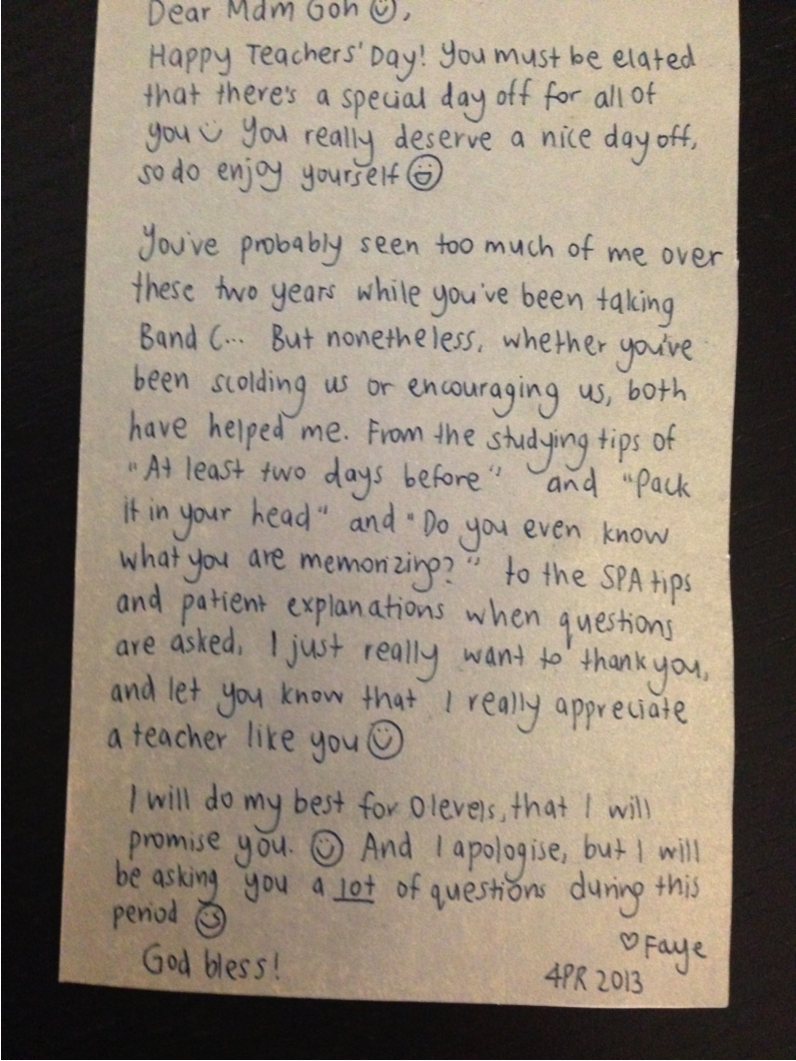 Dear Mdm Goh ☺,
Happy Teachers' Day! You must be elated
that there's a special day off for all of
you ☺ You really deserve a nice day off,
so do enjoy yourself ☺
You've probably seen too much of me over
these two years while you've been taking
Band C... But nonetheless, whether you've
been scolding us or encouraging us, both
have helped me. From the studying tips of
"At least two days before" and "Pack
it in your head" and "Do you even know
what you are memorizing?" to the SPA tips
and patient explanations when questions
are asked, I just really want to thank you,
and let you know that I really appreciate
a teacher like you ☺
I will do my best for O levels, that I will
promise you. ☺ And I apologise, but I will
be asking you a lot of questions during this
period ☺
♡ Faye
God bless!
4PR 2013